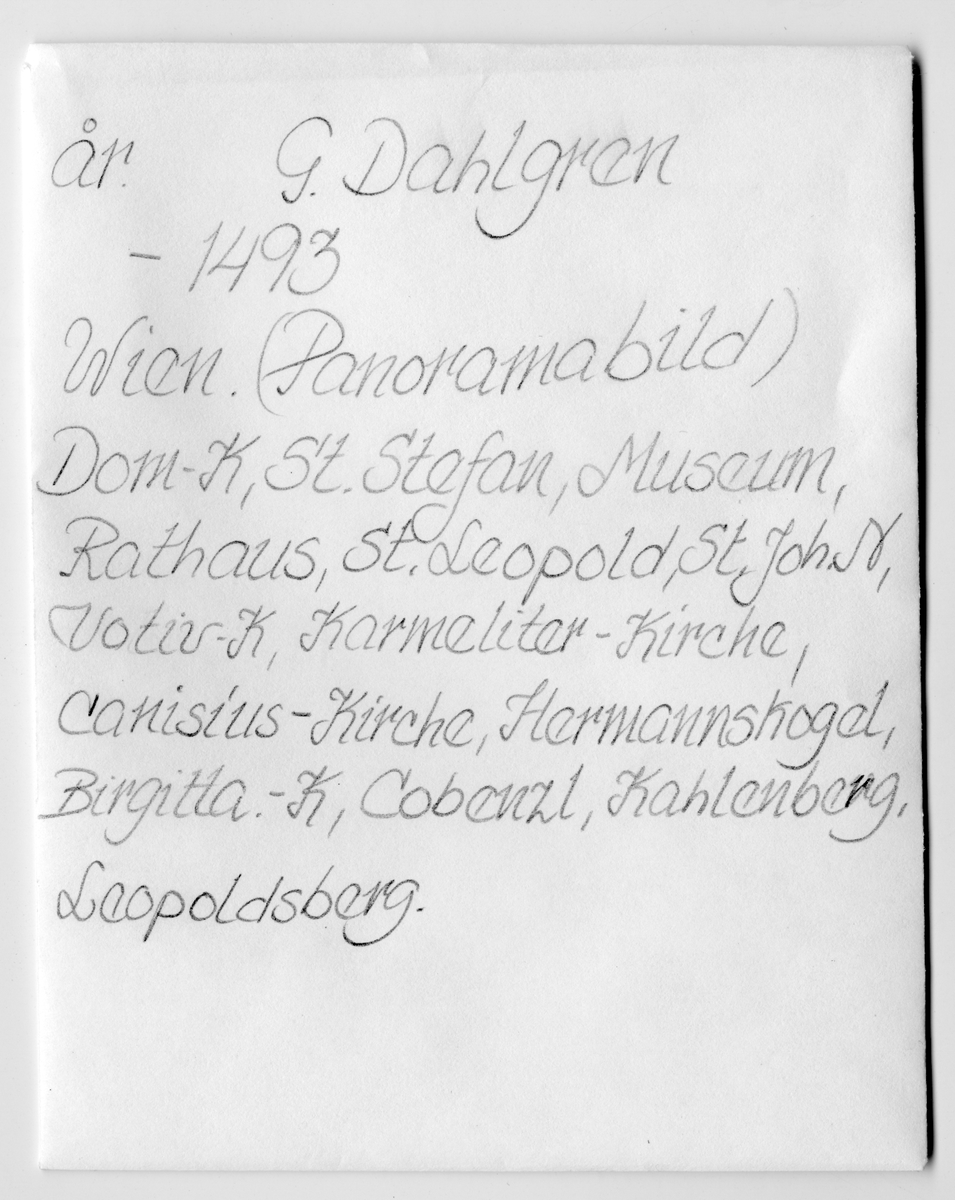 år. G. Dahlgren
- 1493
Wien. (Panoramabild)
Dom-K, St. Stefan, Museum,
Rathaus, St. Leopold, St. Joh. N,
Votiv-K, Karmeliter-Kirche,
Canisius-Kirche, Hermannskogel,
Birgitta.-K, Cobenzl, Kahlenberg.
Leopoldsberg.